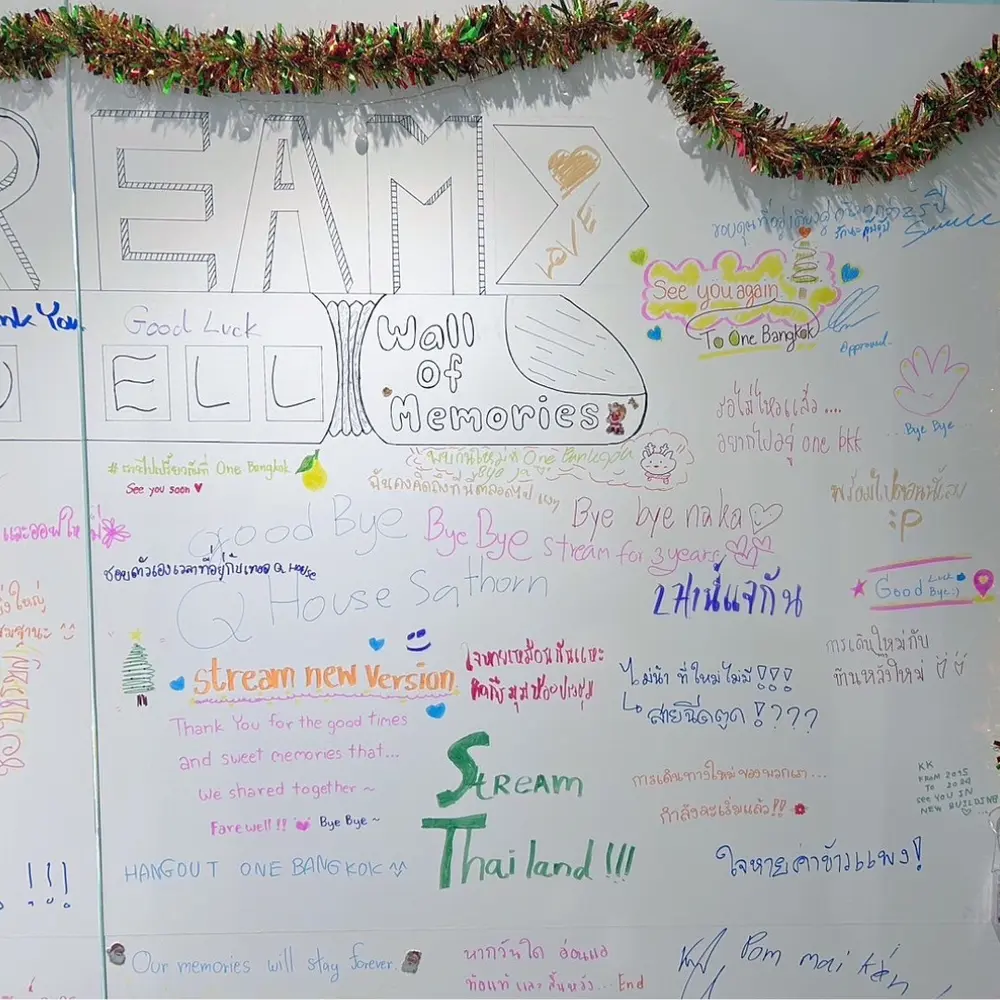 REAM
LOVE
Thank You
Good Luck
ELL
Wall
Of
Memories
ขอบคุณที่
See you again
To One Bangkok
Approved.
Bye Bye
รอไม่ไหวแล้ว....
อยากไปอยู่ one bkk
One Bangkok
See you soon
ฉันคงคิดถึงที่นี่ตลอดไป
พร้อมไปตอนนี้เลย
:P
Good Bye
Bye Bye
Bye bye naka
stream for 3 years
ชอบตัวเองเวลาที่อยู่กับเธอ Q House
Q House Sathorn
เท่านี้แจกัน
Good Luck
Bye :)
stream new version
ใจหายเหมือนกันแหะ
คิดถึงมุมห้องประชุม
ไม่น้า ที่ใหม่ไม่มี
สายฉีดตูด !???
การเดินใหม่กับ
บ้านหลังใหม่
Thank You for the good times
and sweet memories that...
we shared together ~
Farewell!! Bye Bye ~
STREAM
Thailand !!!
การเดินทางใหม่ของพวกเรา...
กำลังจะเริ่มแล้ว!!
KK
FROM 2015
TO 2024
See YOU IN
NEW BUILDING
HANGOUT ONE BANGKOK
ใจหายค่าข้าวแพง!
!!!
Our memories will stay forever.
หากวันใด อ่อนแอ
ท้อแท้ และ สิ้นหวัง... End
Pom mai